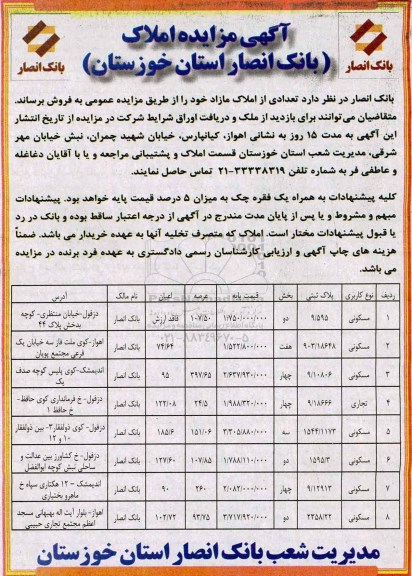 آگهی مزایده املاک
(بانک انصار استان خوزستان)
بانک انصار
بانک انصار
بانک انصار در نظر دارد تعدادی از املاک مازاد خود را از طریق مزایده عمومی به فروش برساند.
متقاضیان می‌توانند برای بازدید از ملک و دریافت اوراق شرایط شرکت در مزایده از تاریخ انتشار
این آگهی به مدت ۱۵ روز به نشانی اهواز، کیانپارس، خیابان شهید چمران، نبش خیابان مهر
شرقی، مدیریت شعب استان خوزستان قسمت املاک و پشتیبانی مراجعه و یا با آقایان دغاغله
و عاطفی فر به شماره تلفن ۳۳۳۳۸۳۱۹-۲۱ تماس حاصل نمایند.
کلیه پیشنهادات به همراه یک فقره چک به میزان ۵ درصد قیمت پایه خواهد بود. پیشنهادات
مبهم و مشروط و یا پس از پایان مدت مندرج در آگهی از درجه اعتبار ساقط بوده و بانک در رد
یا قبول پیشنهادات مختار است. املاک که متصرف تخلیه آنها به عهده خریدار می باشد. ضمناً
هزینه های چاپ آگهی و ارزیابی کارشناسان رسمی دادگستری به عهده فرد برنده در مزایده
می باشد.
ردیف نوع کاربری پلاک ثبتی بخش قیمت پایه عرصه اعیان نام مالک آدرس
۱ مسکونی ۹/۵۹۵ دو ۱/۷۵۰/۰۰۰/۰۰۰ ۱۰۷/۵۰ فاقد ارزش بانک انصار دزفول-خیابان منتظری- کوچه بدخش پلاک ۴۴
۲ مسکونی ۹۰۳/۱۸۶۴۸ هفت ۱/۵۲۲/۸۰۰/۰۰۰ ۷۴/۶۴ بانک انصار اهواز-کوی ملت فاز سه خیابان یک فرعی مجتمع پویان
۳ مسکونی ۹/۱۰۸۰۶ چهار ۲/۶۳۷/۹۳۰/۰۰۰ ۳۹۷/۶۵ ۹۵ بانک انصار اندیمشک-کوی پلیس کوچه صدف یک
۴ تجاری ۹/۱۸۶۶۶ چهار ۱/۹۸۸/۳۲۰/۰۰۰ ۲۴/۵ ۱۲۲/۰۸ بانک انصار دزفول- خ فرمانداری کوی حافظ- خ حافظ ۱
۵ مسکونی ۱۵۴۴/۱۱۷۳ سه ۳/۳۰۵/۸۸۰/۰۰۰ ۱۵۱/۰۶ ۱۸۵/۶ بانک انصار دزفول- کوی ذولفقار۳- بین ذولفقار ۱۰ و ۱۲
۶ مسکونی ۱۵۹۵/۳ دو ۱/۷۸۸/۱۱۰/۰۰۰ ۱۰۷/۸۵ ۱۲۷/۶۰ بانک انصار دزفول- خ کشاورز بین عدالت و ساحلی نبش کوچه ابوالفضل
۷ مسکونی ۹/۱۲۹۱۳ چهار ۲/۰۸۲/۰۰۰/۰۰۰ ۲۶۰ ۹۰ بانک انصار اندیمشک – ۱۲ هکتاری سپاه خ ماهرو بختیاری
۸ مسکونی ۲۳۵۸/۲۲ دو ۳/۷۱۷/۹۲۰/۰۰۰ ۹۳/۷۵ ۱۰۲/۷۲ بانک انصار اهواز- بلوار آیت اله بهبهانی مسجد اعظم مجتمع تجاری حبیبی
مدیریت شعب بانک انصار استان خوزستان